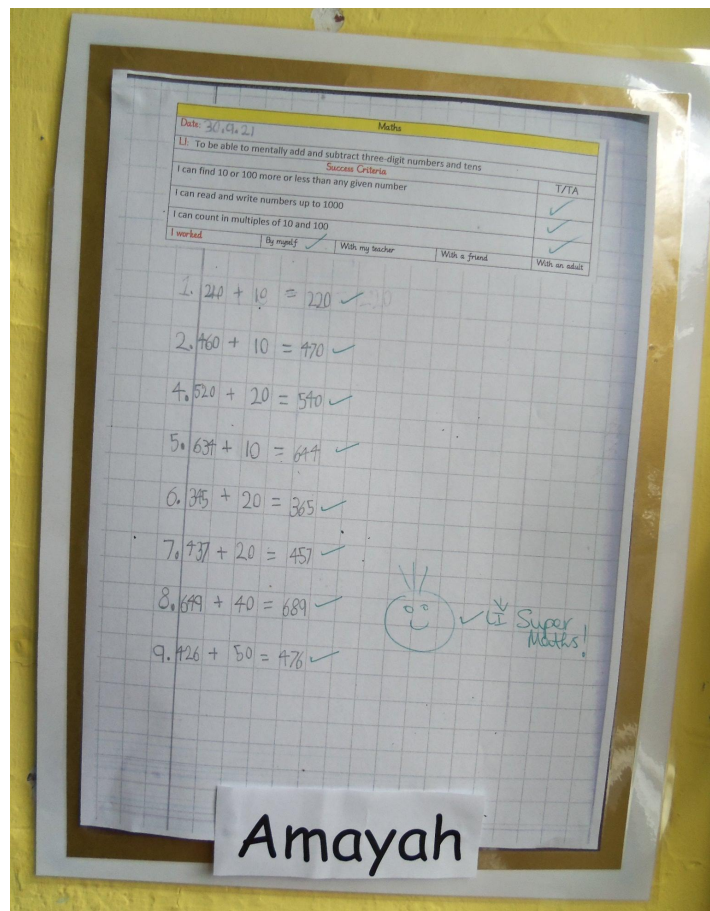 Maths
Date: 30.9.21
LI: To be able to mentally add and subtract three-digit numbers and tens
Success Criteria T/TA
I can find 10 or 100 more or less than any given number
I can read and write numbers up to 1000
I can count in multiples of 10 and 100
I worked By myself With my teacher With a friend With an adult
1. 210 + 10 = 220
2. 460 + 10 = 470
4. 520 + 20 = 540
5. 634 + 10 = 644
6. 345 + 20 = 365
7. 437 + 20 = 457
8. 649 + 40 = 689
9. 426 + 50 = 476
LI Super
Maths!
Amayah